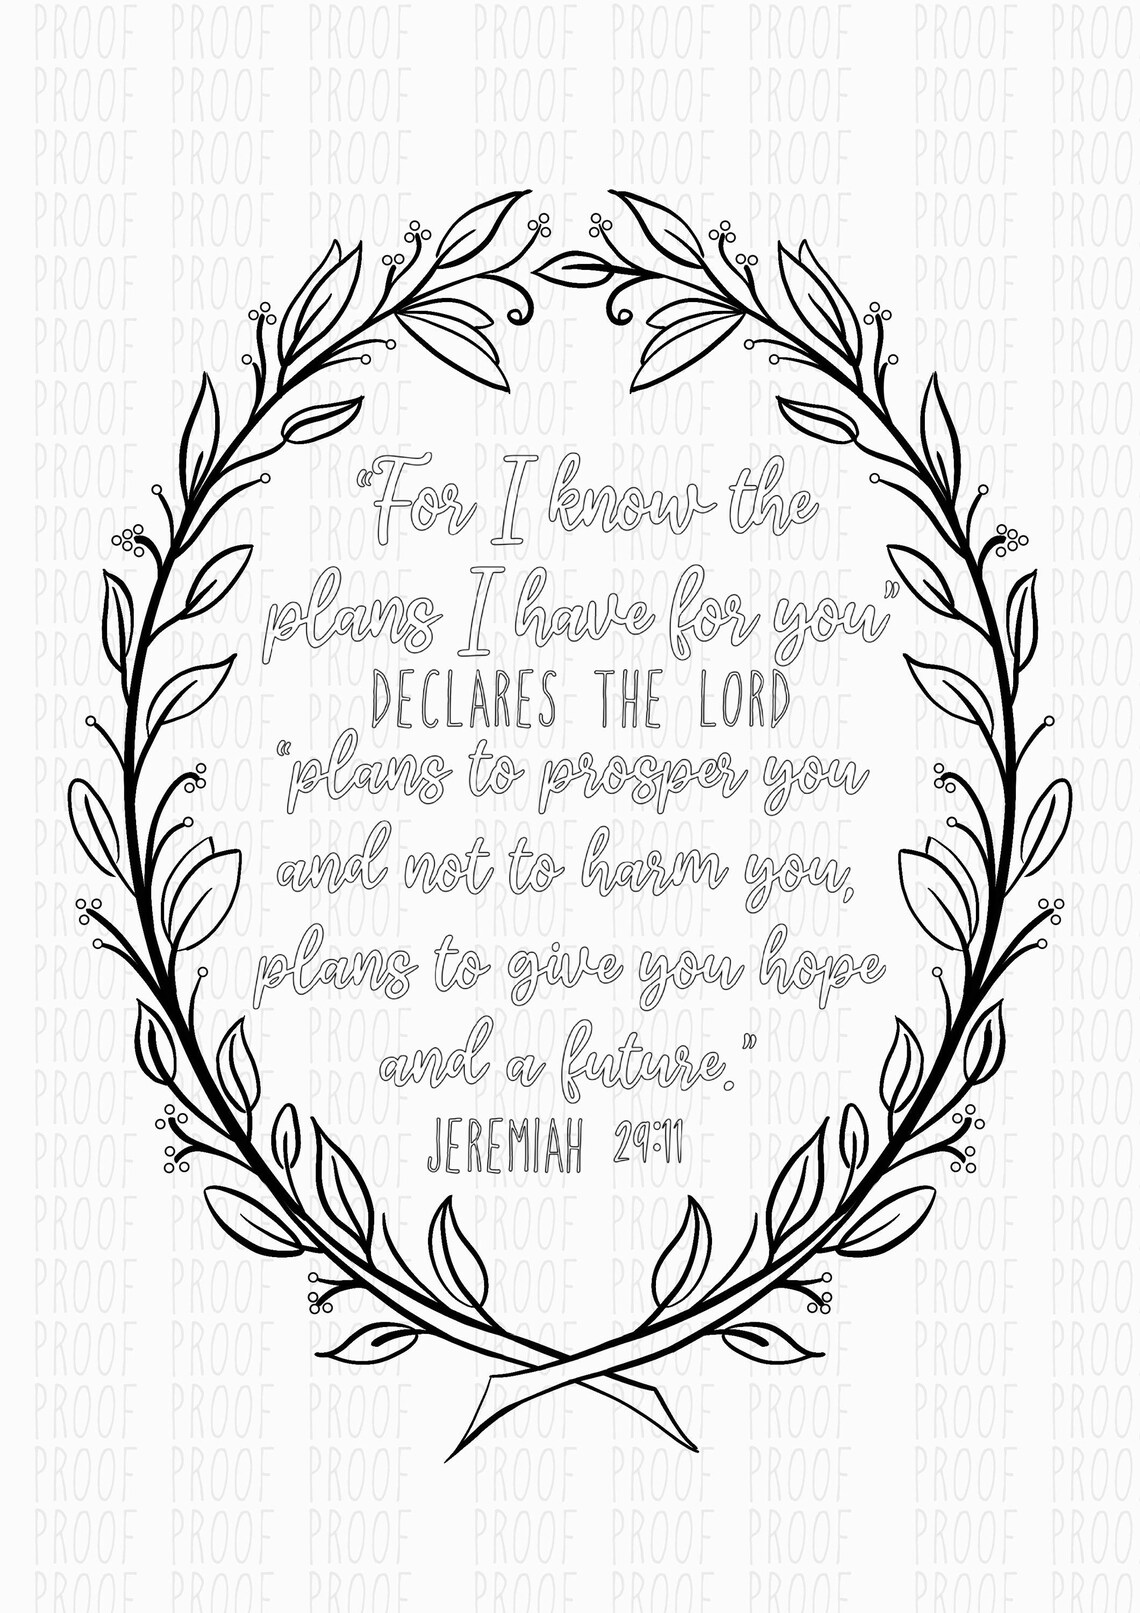 PROOF PROOF PROOF PROOF PROOF PROOF PROOF
“For I know the
plans I have for you”
DECLARES THE LORD
“plans to prosper you
and not to harm you,
plans to give you hope
and a future.”
JEREMIAH 29:11